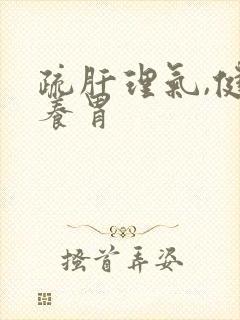 疏肝理氣,健
養胃
搔首弄姿